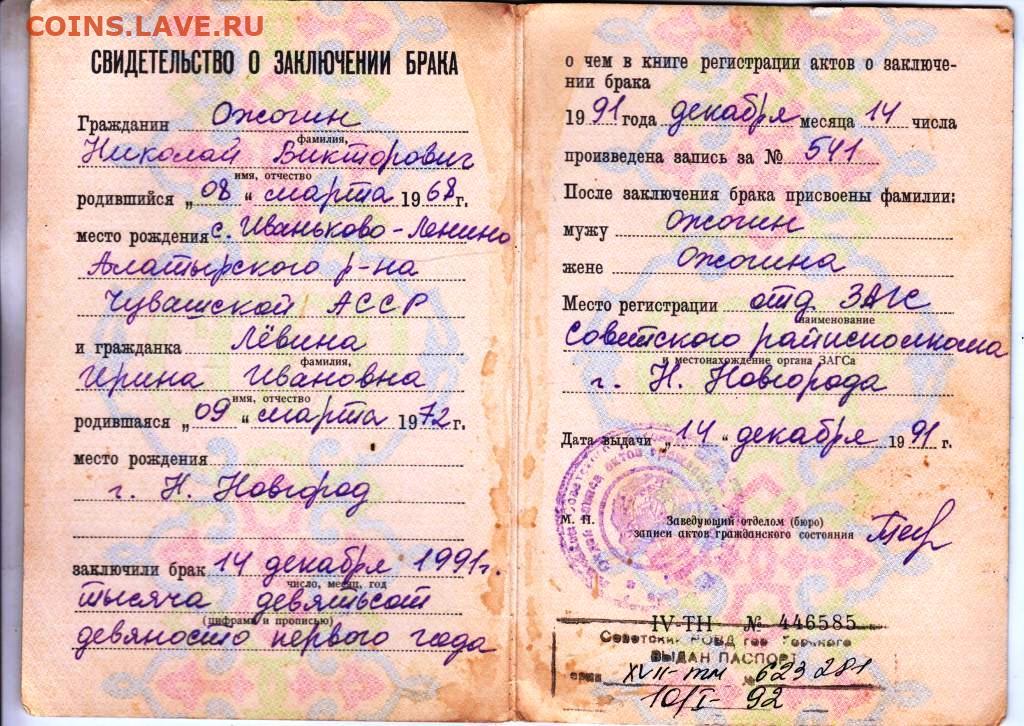 COINS.LAVE.RU
СВИДЕТЕЛЬСТВО О ЗАКЛЮЧЕНИИ БРАКА
Гражданин Ожогин
фамилия,
Николай Викторович
имя, отчество
родившийся „08“ марта 1968 г.
место рождения с. Иваньково-Ленино
Алатырского р-на
Чувашской АССР
и гражданка Лёвина
фамилия,
Ирина Ивановна
имя, отчество
родившаяся „09“ марта 1972 г.
место рождения
г. Н. Новгород
заключили брак 14 декабря 1991 г.
число, месяц, год
тысяча девятьсот
(цифрами и прописью)
девяносто первого года
о чем в книге регистрации актов о заключе-
нии брака
1991 года декабря месяца 14 числа
произведена запись за № 541
После заключения брака присвоены фамилии:
мужу Ожогин
жене Ожогина
Место регистрации отд. ЗАГС
наименование
Советского райисполкома
и местонахождение органа ЗАГСа
г. Н. Новгорода
Дата выдачи „14“ декабря 1991 г.
М. П.
Заведующий отделом (бюро)
записи актов гражданского состояния
IV-ТН № 446585
Советским РОВД гор Горького
ВЫДАН ПАСПОРТ
серия XVII-тн № 623281
10/I-92